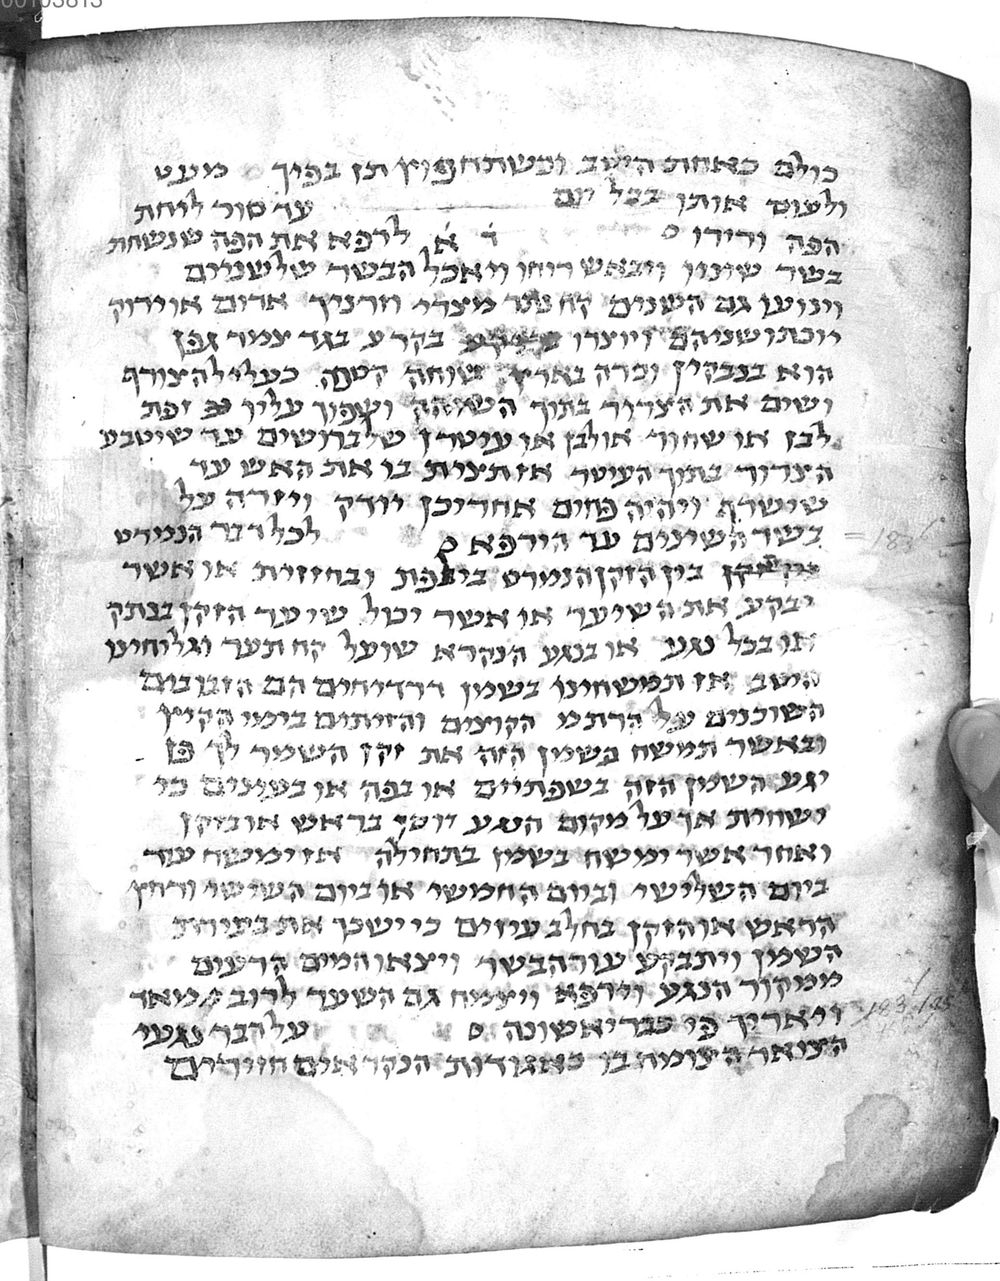 00103813
כולם כאחת היטב וכשתחפוץ תן בפיך מעט
ולעוס אותו בכל יום עד סור ליחת
הפה ורירו ד א לרפא את הפה שנשחת
בשר שיניו ויבאש רוחו ויאכל הבשר שלשנים
וינועו גם השנים קח מצדי וזרניך אדום או ירוק
יוכתו שניהם ויוצרו בקרע בגד צמר גפן
הוא בנבקין וכרה בארץ שוחה קטנה כעלי להצורף
ושים את הצרור בתוך השוחה ושפוך עליו זפת
לבן או שחור או לבן או עיטרן שלברושים עד שיטבע
הצרור בתוך העיטר אז תצית בו את האש עד
שישרף ויהיה פחים אחריכן יודק ויזרה על
בשר השינים עד הירפא לכל דבר הנמרט
בין הזקן הנמרט בילפת ובחזזית או אשר
יבקע את השיער או אשר יכול שיער הזקן בנתק
או בכל נגע או בנגע הנקרא שועל קח תער וגלוחיט
היטב אז תמשחינו בשמן דרדיחים הם הזבובים
השוכנים על הרתם הקוצים והזיתים בימי הקיץ
ובאשר תמשח בשמן הזה את זקן השמר לך פן
יגע השמן הזה בשפתיים או בפה או בעינים כי
ישחית אך על מקום הנגע יוסך בראש או בזקן
ואחר אשר ימשח בשמן בתחילה אז ימשח עוד
ביום השלישי וביום החמישי או ביום השישי ורחץ
הראש או הזקן בחלב עיזים כי ישכך את בעירת
השמן ויתבקע עור הבשר ויצאו המים הרעים
ממקור הנגע וירפא ויצמח גם השער לרוב מאד
ויאריך פי כבריאשונה על דבר נגעי
הצואר הצומח בו כאגודות הנקראים חזירים